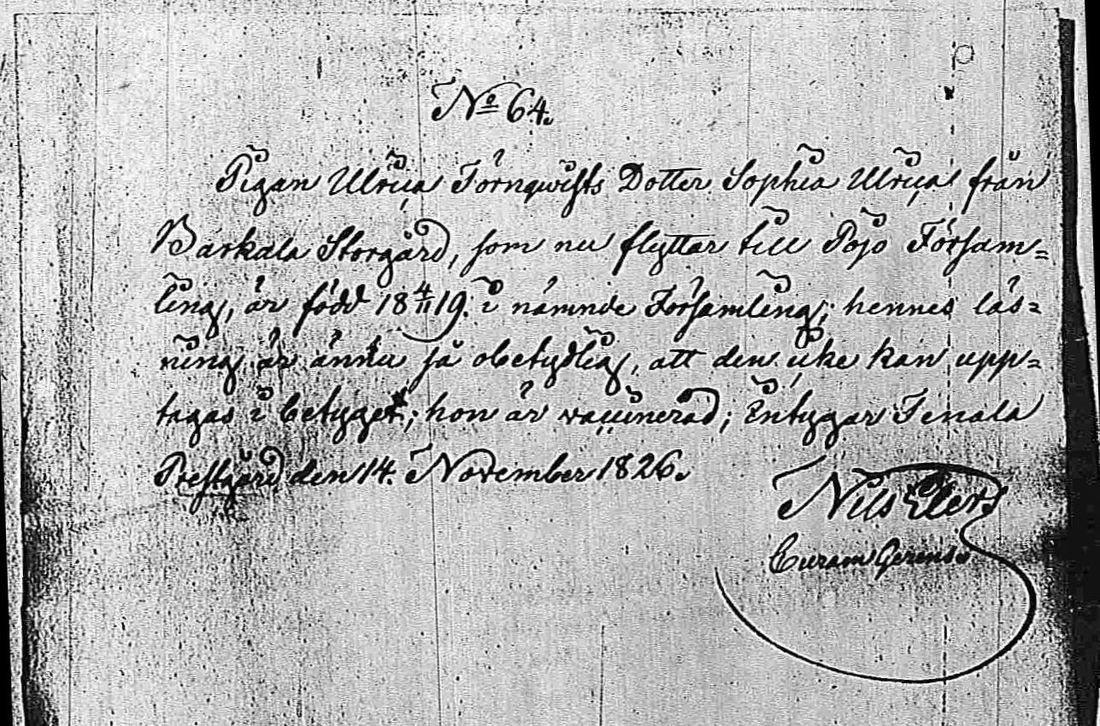 No 64.
Pigan Ulrica Törnqwists Dotter Sophia Ulrica från
Barkala Storgård, som nu flyttar till Pojo Försam⸗
ling, är född 18 4/11 19. i nämnde Församling; hennes läs⸗
ning är ännu så obetydlig, att den icke kan upp⸗
tagas i betyget; hon är vaccinerad; Intygar Tenala
Prestgård den 14. November 1826.
Nils Elers
Curam Gerens